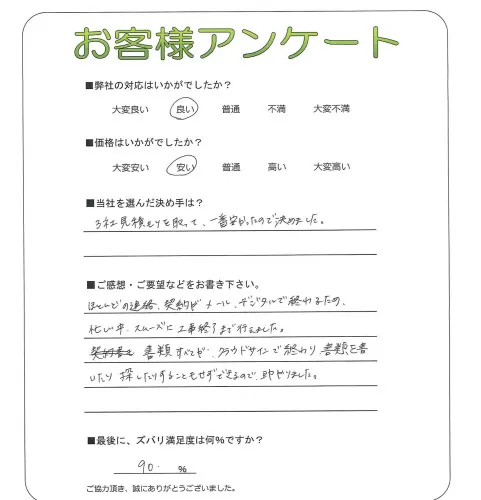 お客様アンケート
■弊社の対応はいかがでしたか？
大変良い 良い 普通 不満 大変不満
■価格はいかがでしたか？
大変安い 安い 普通 高い 大変高い
■当社を選んだ決め手は？
3社見積もりを取って、一番安かったので決めました。
■ご感想・ご要望などをお書き下さい。
ほとんどの連絡、契約がメール、デジタルで終わるため、
忙しい中、スムーズに工事終了まで行えました。
書類すべてが、クラウドサインで終わり、書類を書
いたり探したりすることもせずできるので、助かりました。
■最後に、ズバリ満足度は何%ですか？
90. %
ご協力頂き、誠にありがとうございました。